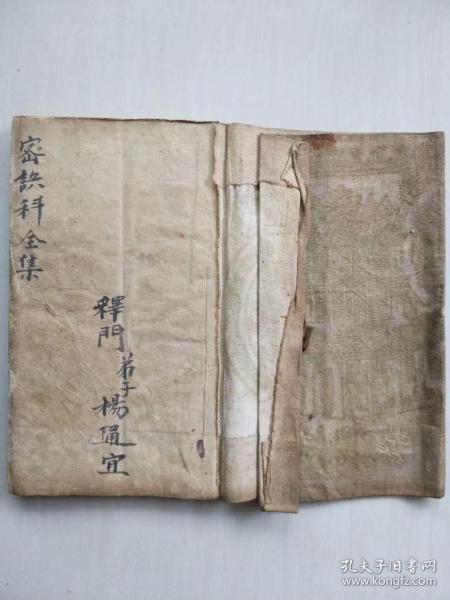 密訣科全集
釋門弟子楊通宜
孔夫子旧书网
www.kongfz.com